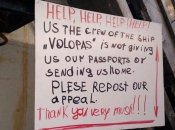 HELP, HELP, HELP, HELP!
US THE CREW OF THE SHIP
„VOLOPAS" IS NOT GIVING
US OUR PASSPORTS OR
SENDING US HOME.
PLESE REPOST OUR
appeal.
THANK YOU VERY MUSH!!!